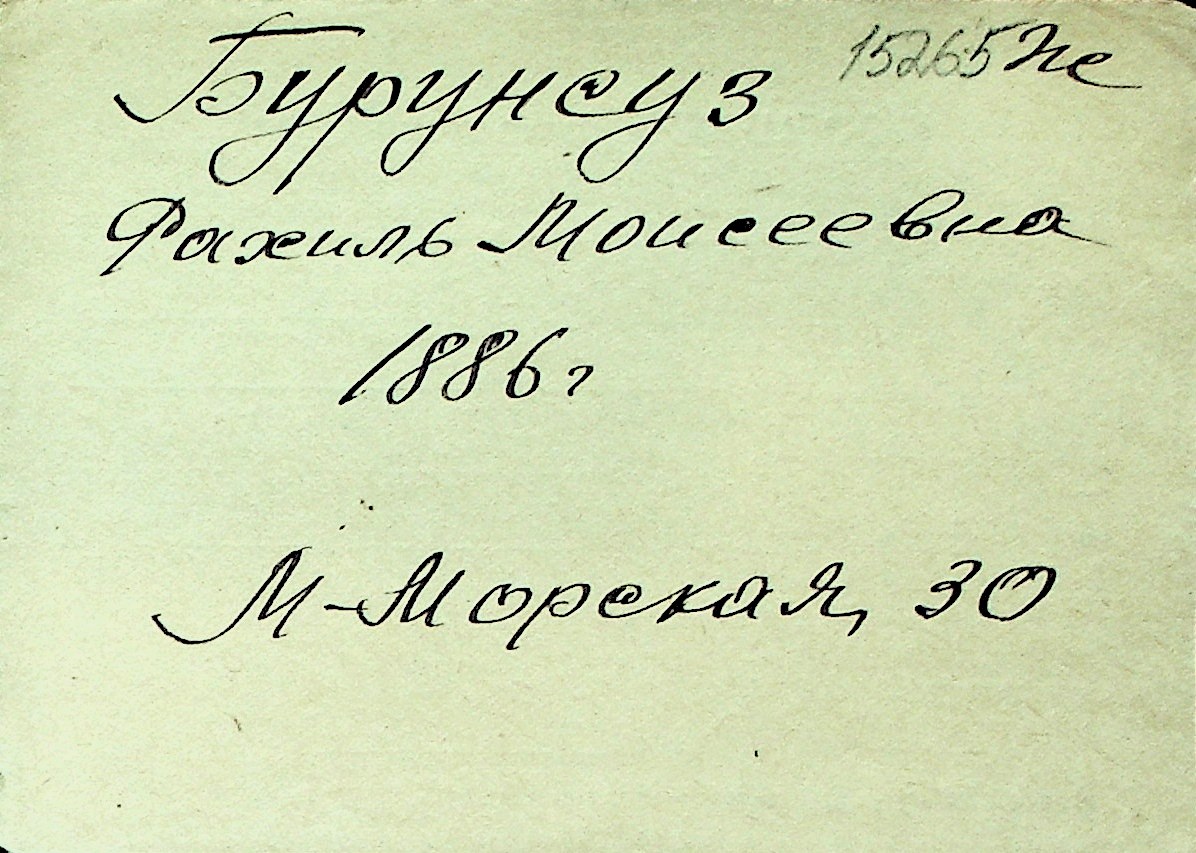 Бурунсуз 15265 Же
Рахиль Моисеевна
1886 г
М-Морская, 30